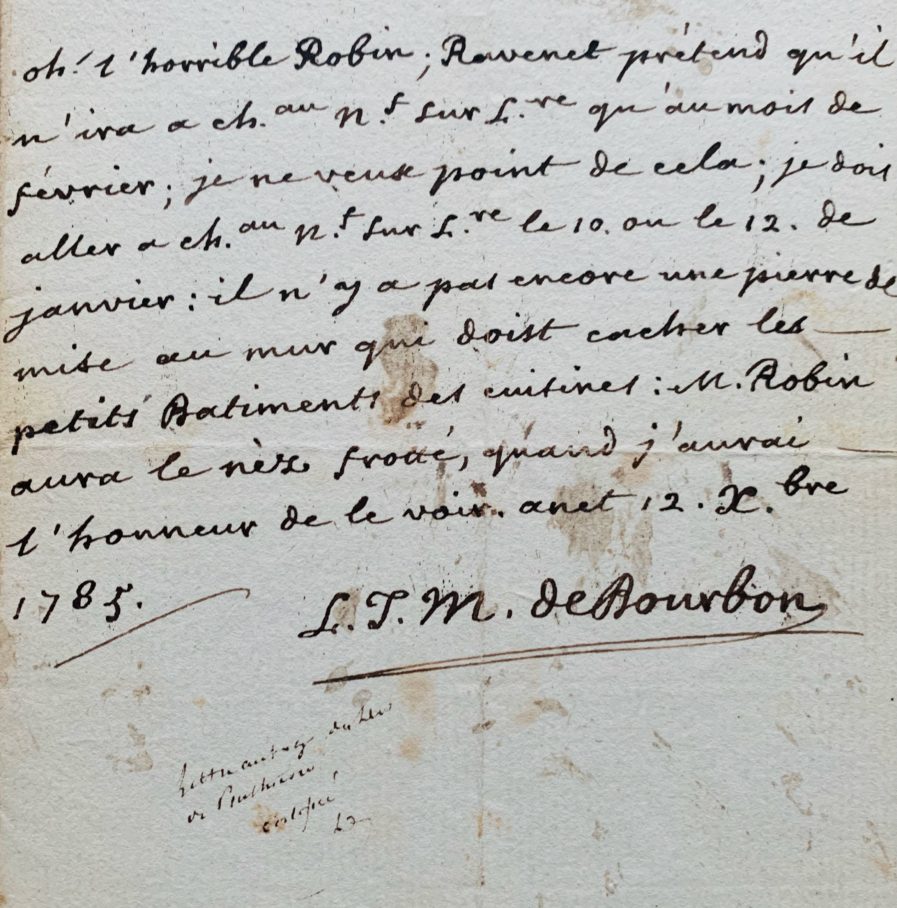 oh! l'horrible Robin; Ravenet prétend qu'il
n'ira a ch.au n.f sur L.re qu'au mois de
février; je ne veux point de cela; je dois
aller a ch.au n.f sur L.re le 10. ou le 12. de
janvier: il n'y a pas encore une pierre de
mise au mur qui doist cacher les
petits Batiments des cuisines: M. Robin
aura le nèz frotté, quand j'aurai
l'honneur de le voir. anet 12. X.bre
1785.
L. J. M. de Bourbon
Lettre du Duc
de Penthievre
certifié